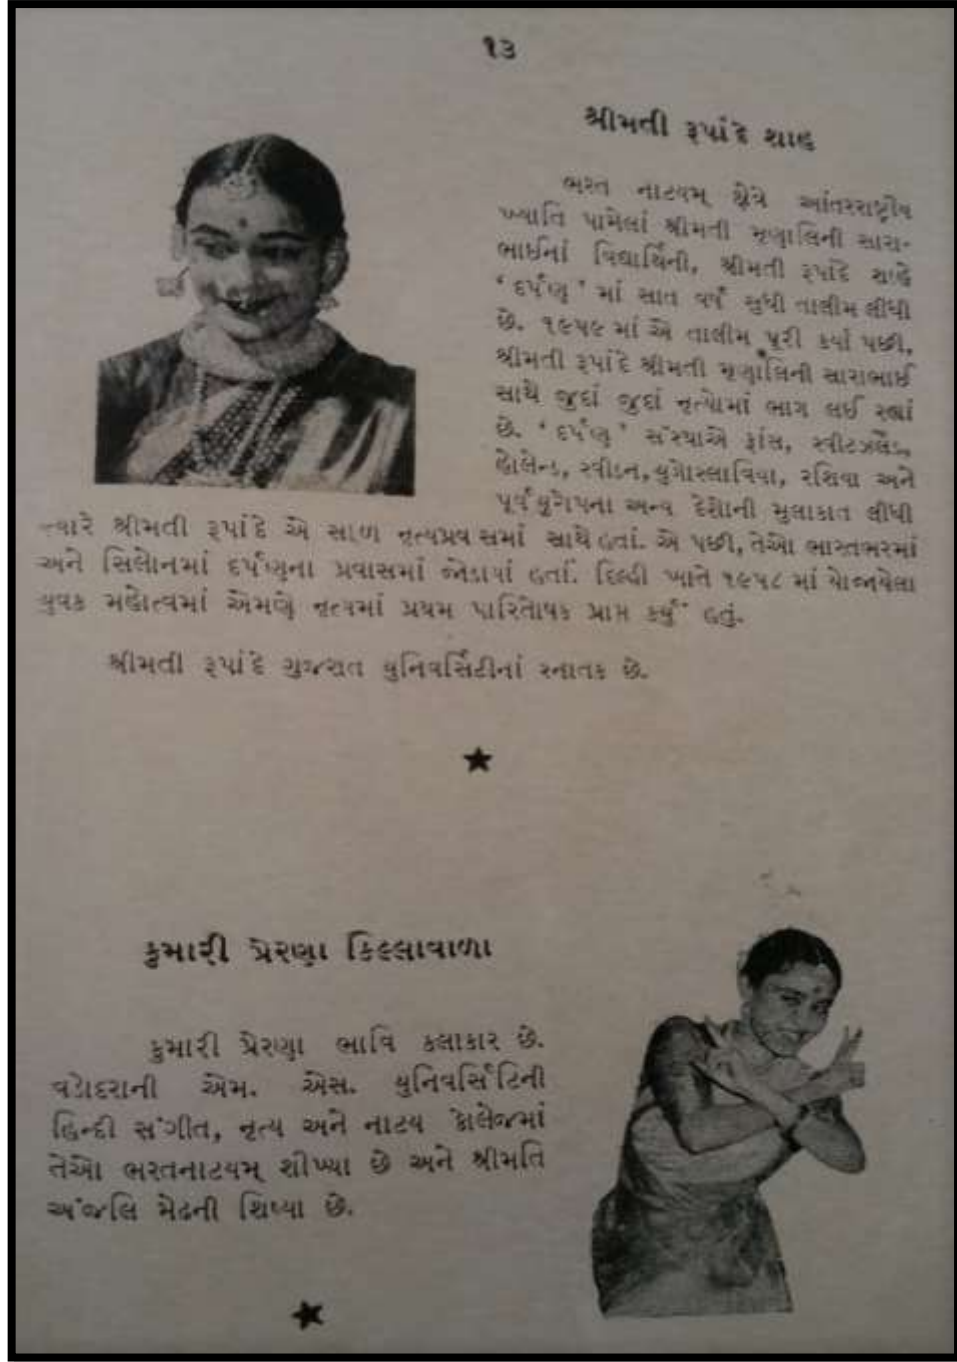 ૧૩
શ્રીમતી રૂપાંદે શાહ
ભરત નાટયમ્ ક્ષેત્રે આંતરરાષ્ટ્રીય
ખ્યાતિ પામેલાં શ્રીમતી મૃણાલિની સારા-
ભાઈનાં વિદ્યાર્થિની, શ્રીમતી રૂપાંદે શાહે
‘દર્પણ’ માં સાત વર્ષ સુધી તાલીમ લીધી
છે. ૧૯૫૯ માં એ તાલીમ પૂરી કર્યા પછી,
શ્રીમતી રૂપાંદે શ્રીમતી મૃણાલિની સારાભાઈ
સાથે જુદાં જુદાં નૃત્યોમાં ભાગ લઈ રહ્યાં
છે. ‘દર્પણ’ સંસ્થાએ ફ્રાંસ, સ્વીટઝર્લેંડ,
હોલેન્ડ, સ્વીડન, યુગોસ્લાવિયા, રશિયા અને
પૂર્વયુરોપના અન્ય દેશોની મુલાકાત લીધી
ત્યારે શ્રીમતી રૂપાંદે એ સાળ નૃત્યપ્રવાસમાં સાથે હતાં. એ પછી, તેઓ ભારતભરમાં
અને સિલોનમાં દર્પણના પ્રવાસમાં જોડાયાં હતાં. દિલ્હી ખાતે ૧૯૫૮ માં યોજાયેલા
યુવક મહોત્વમાં એમણે નૃત્યમાં પ્રથમ પારિતોષક પ્રાપ્ત કર્યું હતું.
શ્રીમતી રૂપાંદે ગુજરાત યુનિવર્સિટીનાં સ્નાતક છે.
કુમારી પ્રેરણા કિલ્લાવાળા
કુમારી પ્રેરણા ભાવિ કલાકાર છે.
વડોદરાની એમ. એસ. યુનિવર્સિટિની
હિન્દી સંગીત, નૃત્ય અને નાટય કોલેજમાં
તેઓ ભરતનાટયમ્ શીખ્યા છે અને શ્રીમતિ
અંજલિ મેઢની શિષ્યા છે.